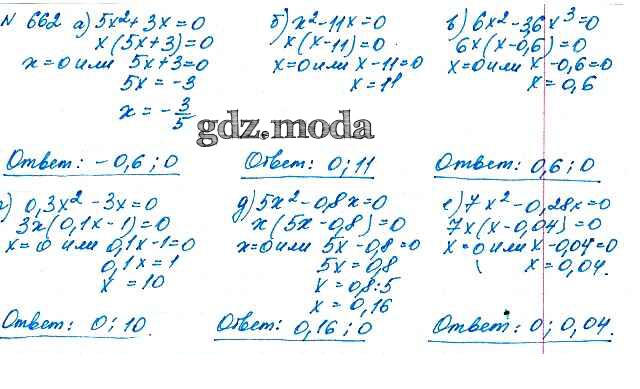 N 662 а) 5x² + 3x = 0
x(5x+3)=0
x=0 или 5x+3=0
5x = -3
x = - 3/5
Ответ: -0,6; 0
б) x² - 11x = 0
x(x-11)=0
x=0 или x-11=0
x=11
Ответ: 0; 11
в) 6x² - 3,6x³=0
6x(x-0,6)=0
x=0 или x-0,6=0
x=0,6
Ответ: 0,6; 0
gdz.moda
г) 0,3x² - 3x=0
3x(0,1x-1)=0
x=0 или 0,1x-1=0
0,1x=1
x = 10
Ответ: 0; 10.
д) 5x² - 0,8x=0
x(5x-0,8)=0
x=0 или 5x-0,8=0
5x=0,8
x=0,8:5
x=0,16
Ответ: 0,16; 0
е) 7x² - 0,28x=0
7x(x-0,04)=0
x=0 или x-0,04=0
x=0,04.
Ответ: 0; 0,04.